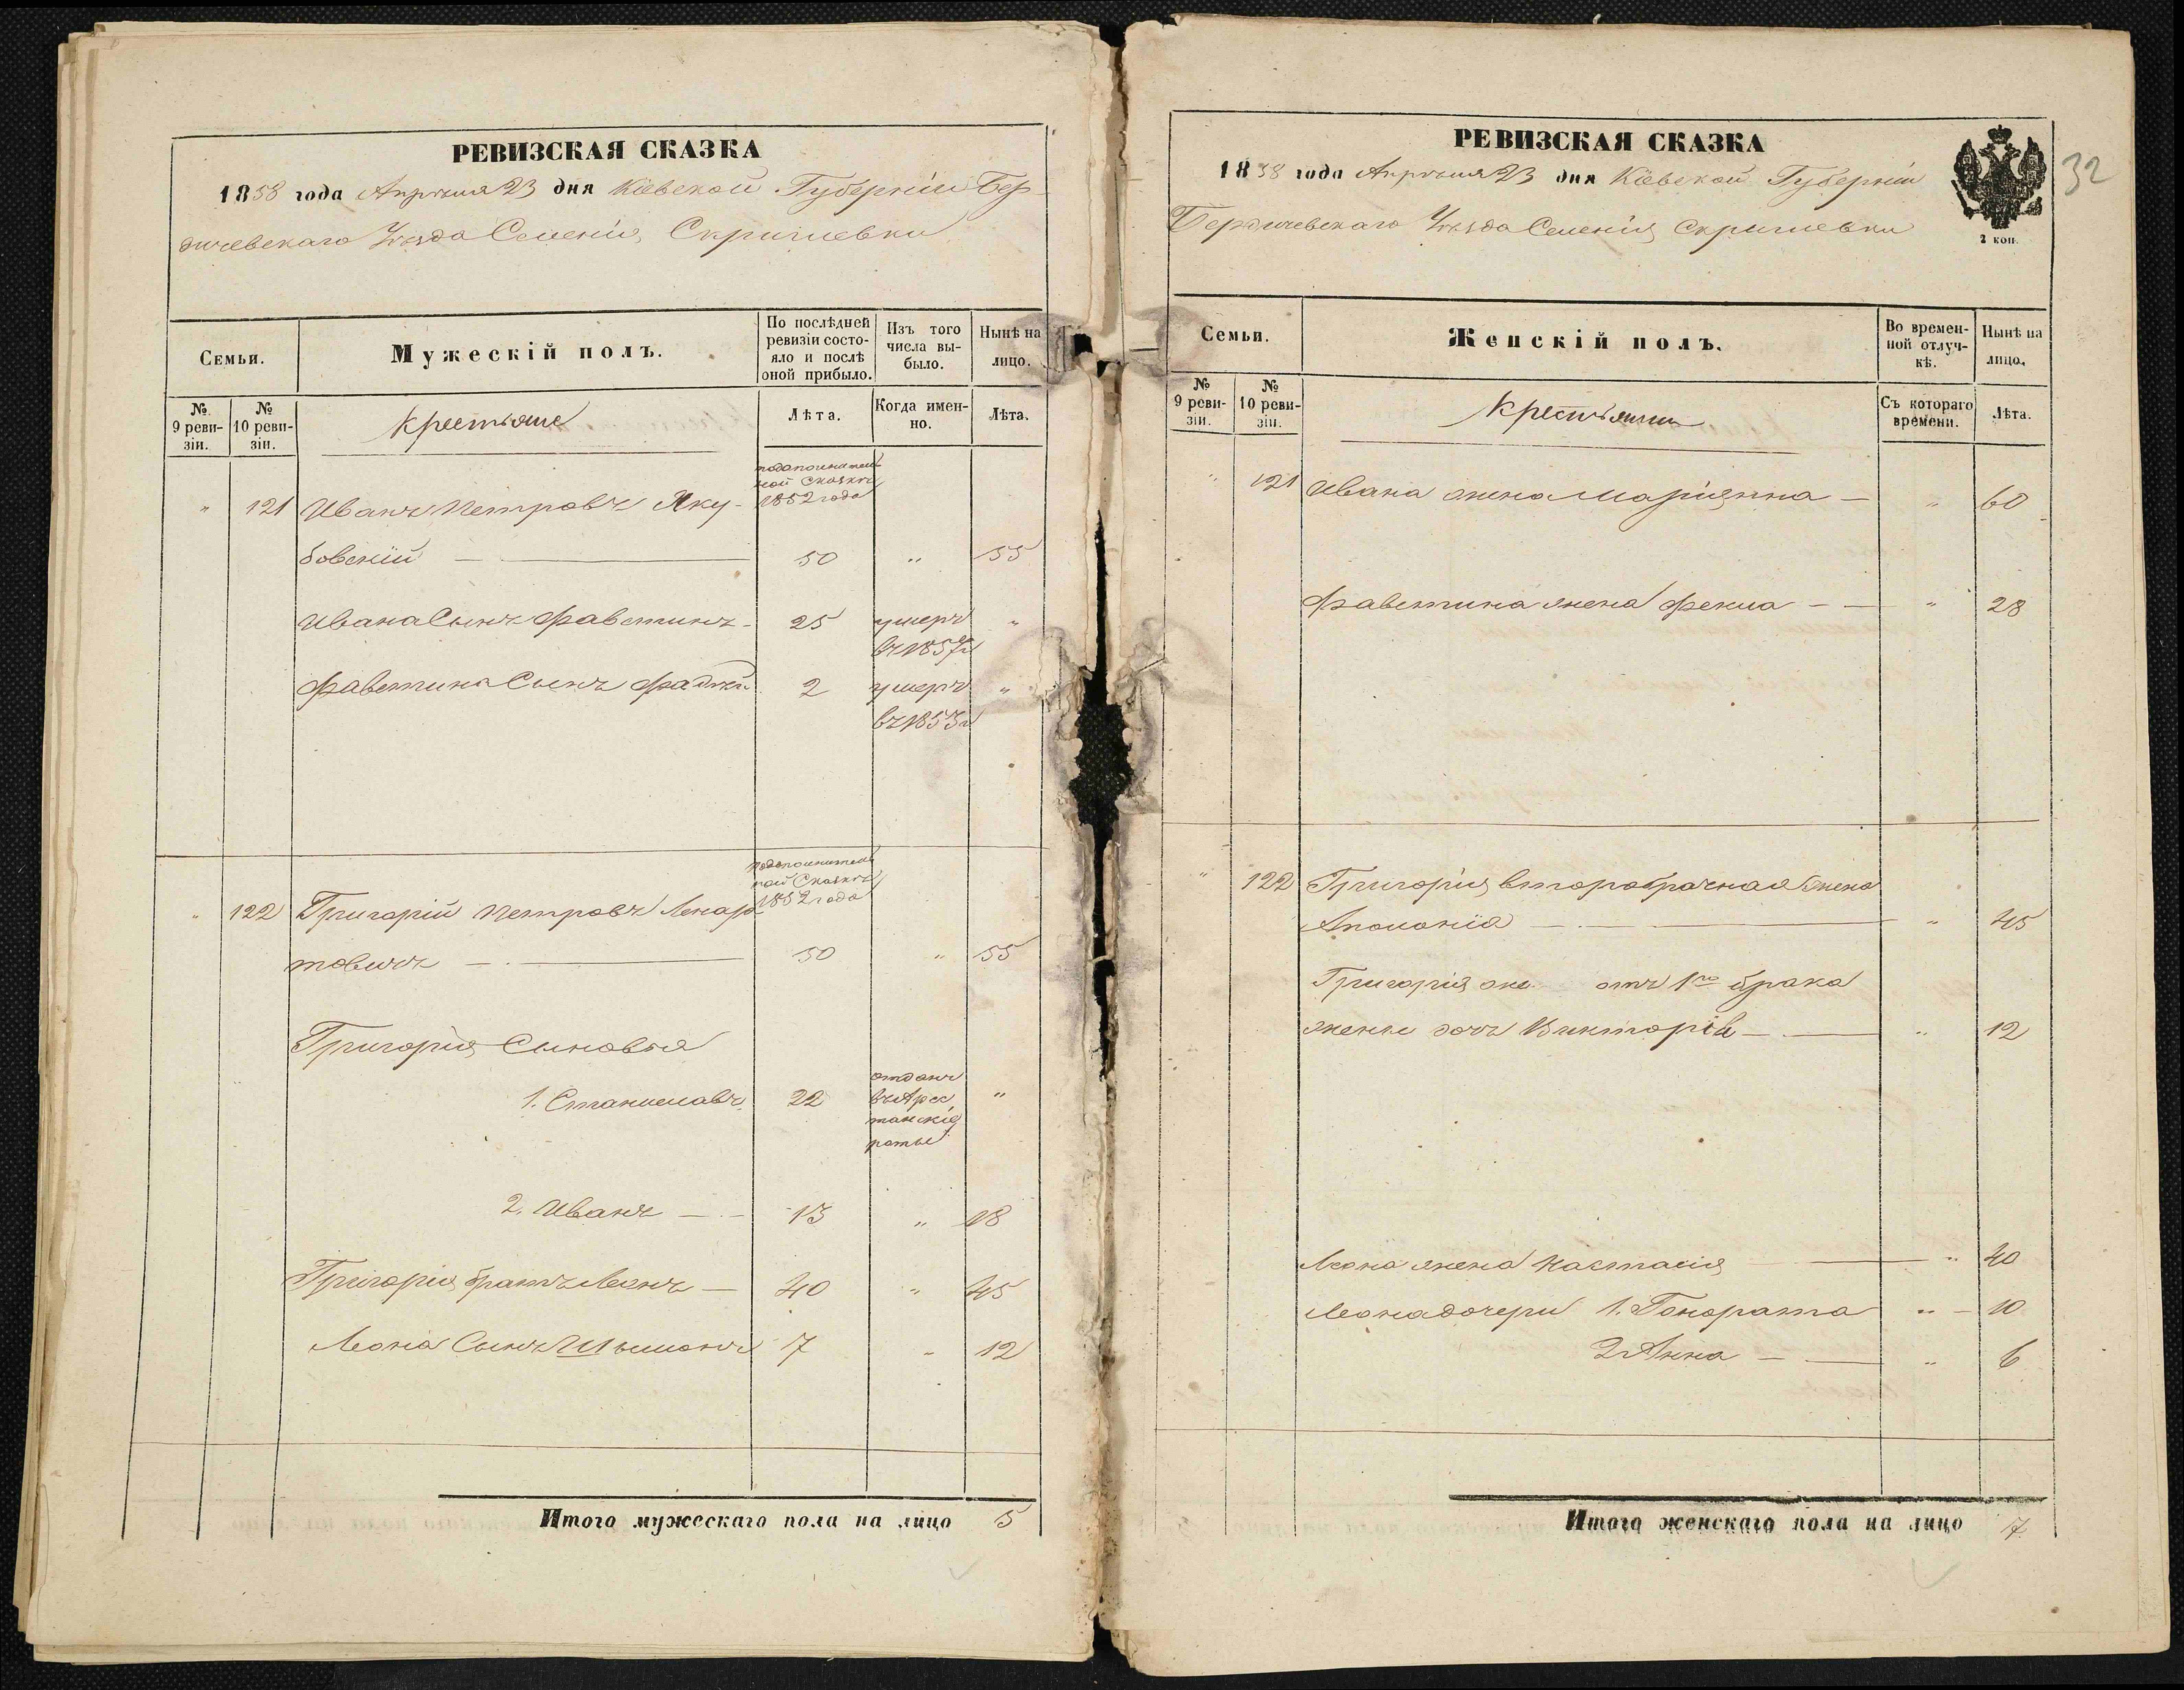 РЕВИЗСКАЯ СКАЗКА
1858 года Апрѣля 23 дня Кіевской Губерніи Бер-
дичевскаго Уѣзда Селенія Скригиевки
Семьи.
Мужескій полъ.
По послѣдней ревизіи состо-
яло и послѣ оной прибыло.
Изъ того числа вы-
было.
Нынѣ на лицо.
№ 9 реви-
зіи.
№ 10 реви-
зіи.
Крестьяне
Лѣта.
Когда имен-
но.
Лѣта.
подополнитель
ной Сказкѣ
1852 года
" 121 Иванъ Петровъ Яку-
бовскій — 50 " 55
Ивана Сынъ Фавстинъ - 25 умеръ "
въ 1857 г
Фавстина Сынъ Фадѣй 2 умеръ "
въ 1853 г
подополнитель
ной Сказкѣ
1852 года
" 122 Григорій Петровъ Ленар
товичъ — 50 " 55
Григорія Сыновья
1. Станиславъ 22 отданъ "
въ Арес
танскія
роты
2. Иванъ — 13 " 18
Григорія братъ Леонъ — 40 " 45
Леона Сынъ Шымонъ 7 " 12
Итого мужескаго пола на лицо 5
РЕВИЗСКАЯ СКАЗКА
32
1858 года Апрѣля 23 дня Кіевской Губерніи
Бердичевскаго Уѣзда Селенія Скригиевки
2 коп.
Семьи.
Женскій полъ.
Во времен-
ной отлуч-
кѣ.
Нынѣ на лицо.
№ 9 реви-
зіи.
№ 10 реви-
зіи.
Крестьянки
Съ котораго времени.
Лѣта.
" 121 Ивана жена Маріянна — " 60
Фавстина жена Фекла — " 28
" 122 Григорія второбрачная жена
Аполонія — " 45
Григорія же отъ 1го брака
жены дочь Викторія — " 12
Леона жена Настасія — " 40
Леона дочери 1. Гонората " — 10
2 Анна — " 6
Итого женскаго пола на лицо 7